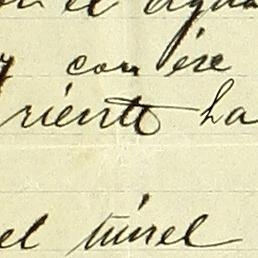 en el agua
y con ese
riente ha
el túnel